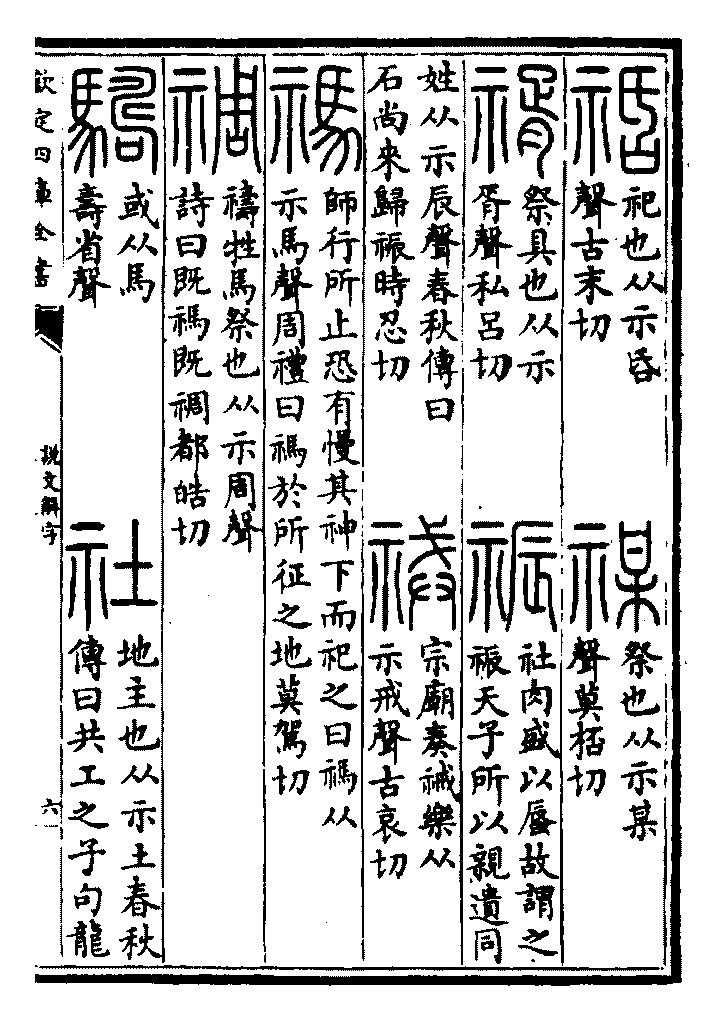 䄆
祀也从示昏
聲古末切
禖
祭也从示某
聲莫桮切
䄌
祭具也从示
胥聲私呂切
祳
社肉盛以蜃故謂之
祳天子所以親遺同
姓从示辰聲春秋傳曰
石尚來歸祳時忍切
祴
宗廟奏祴樂从
示戒聲古哀切
禡
師行所止恐有慢其神下而祀之曰禡从
示馬聲周禮曰禡於所征之地莫駕切
禂
禱牲馬祭也从示周聲
詩曰既禡既禂都皓切
或从馬
壽省聲
社
地主也从示土春秋
傳曰共工之子句龍
欽定四庫全書
說文解字
六